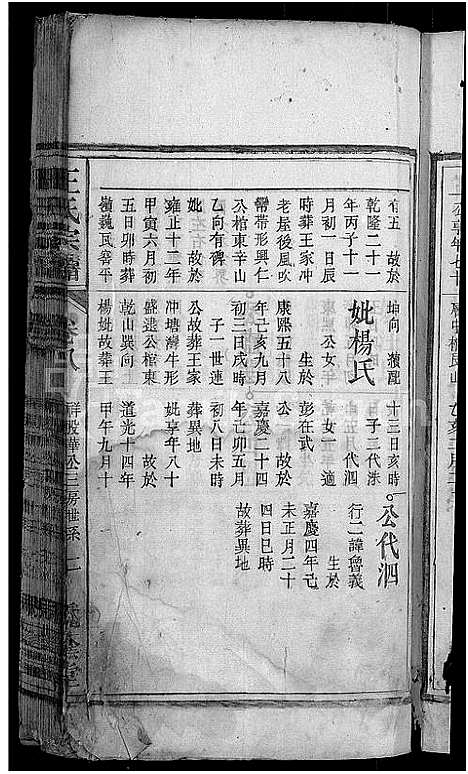 有五　故於
乾隆二十一
年丙子十一
月初一日辰
時葬王家冲
老屋後風吹
帶形興仁
公棺東辛山
乙向有碑
妣　故於
雍正十二年
甲寅六月初
五日卯時葬
魏民窖平
坤向
妣楊氏
公女年
生於
康熙五十八
年己亥九月
初三日戌時
子一世蓮
公故葬王家
冲塘灣牛形
盛逵公棺東
乾山巽向
楊妣故葬王
十三日亥時
子二代添
代泗
女一　適
彭在武
公　故於
嘉慶二十四
年己卯五月
初八日未時
葬異地
妣享年八十
故於
道光十四年
甲午九月十
公代泗
行二諱魯義
生於
嘉慶四年己
未正月二十
四日巳時
故葬異地
王氏宗譜
卷八
祥殷曄公三房世系